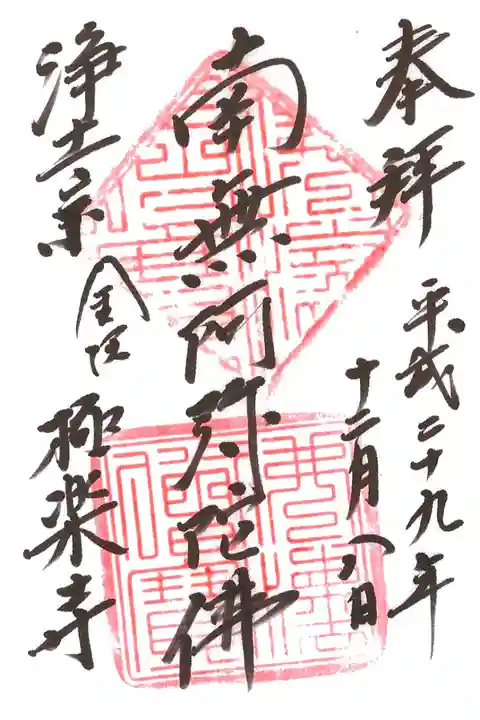 奉拝
平成二十九年
十二月八日
南無阿弥陀佛
浄土宗
金沢
極楽寺